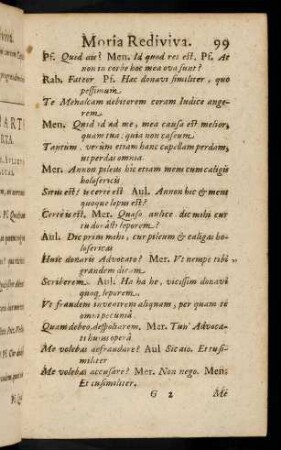 Moria Rediviva. 99
Pf. Quid ais? Men. Id quod res est. Pf. At
non in corbe hoc mea ova sunt?
Rab. Fateor Pf. Hac donavi similiter, quo
pessimum
Te Mehalcam debitorem coram Iudice ange-
rem.
Men. Quid id ad me, mea causa est melior,
quam tua: quia non caseum
Tantum, verùm etiam hanc capellam perdam,
ut perdas omnia.
Mer. Annon pileus hic etiam meus cum caligis
holosericis
Siriis est? is certè est Aul. Annon hic & meus
quoque lepus est?
Certè is est. Mer. Quaso aulice dic mihi cur
tu donâsti leporem?
Aul. Dic prim mihi, cur pileum & caligas ho-
losericas
Huic donaris Advocato? Mer. Vt nempe tibi
grandem dicam
Scriberem. Aul. Ha ha he, vicissim donavi
quoq; leporem.
Vt fraudem inventrem aliquam, per quam te
omni pecuniâ
Quam debeo, despoliarem. Mer. Tun' Advoca-
ti huius operâ
Me volebas defraudare? Aul Sic aio. Et tu si-
militer
Me volebas accusare? Mer. Non nego. Men.
Et tu similiter.
G 2 Me